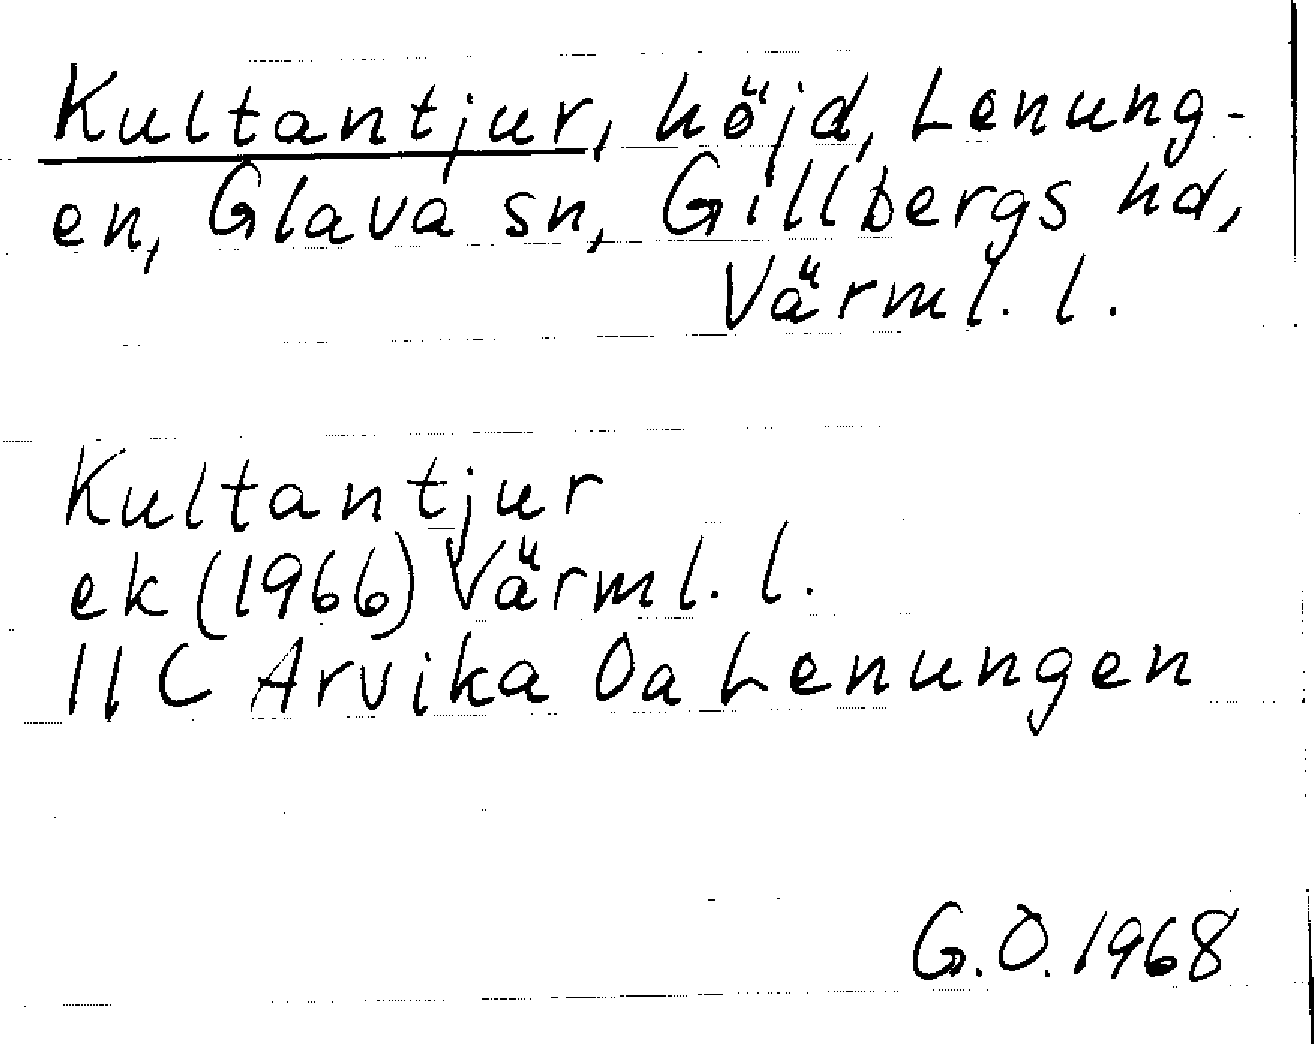 Kultantjur, höjd, Lenung-
en, Glava sn, Gillbergs hd,
Värml. l.
Kultantjur
ek (1966) Värml. l.
11 C Arvika 0a Lenungen
G.O. 1968